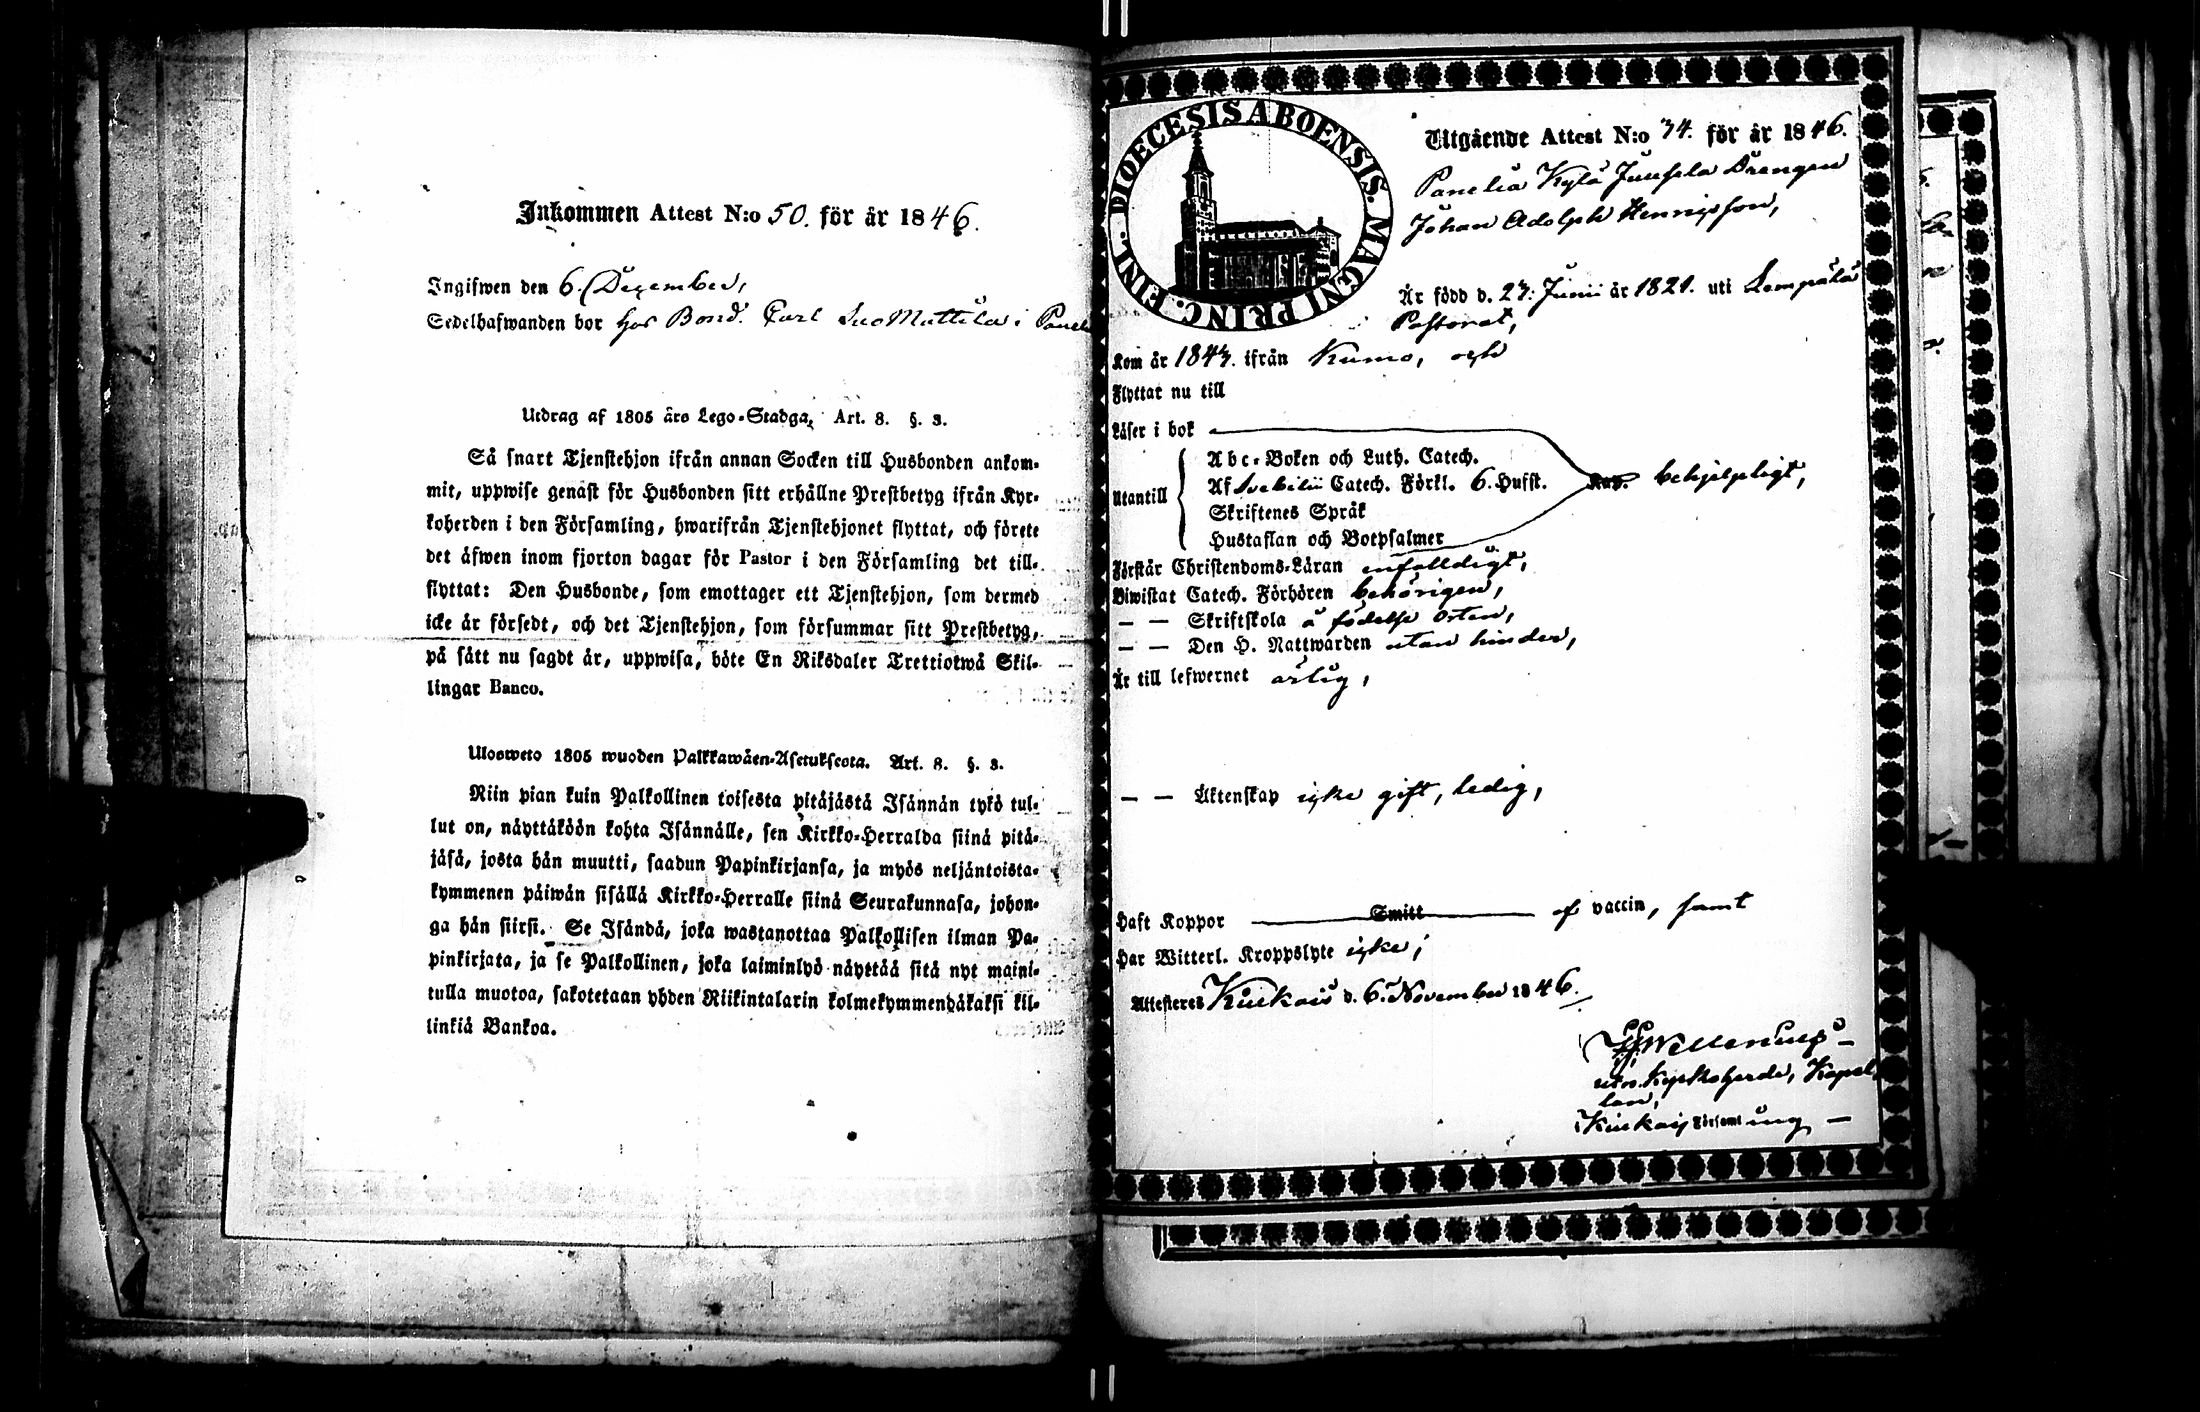 Inkommen Attest N:o 50. för år 1846.
Ingifwen den 6. December,
Sedelhafwanden bor hos Bond. Carl Suo Mattila i Panel
Utdrag af 1805 års Lego-Stadga, Art. 8. §. 3.
Så snart Tjenstehjon ifrån annan Socken till Husbonden ankom-
mit, uppwise genast för Husbonden sitt erhållne Prestbetyg ifrån Kyr-
koherden i den Församling, hwarifrån Tjenstehjonet flyttat, och förete
det äfwen inom fjorton dagar för Pastor i den Församling det till-
flyttat: Den Husbonde, som emottager ett Tjenstehjon, som dermed
icke är försedt, och det Tjenstehjon, som försummar sitt Prestbetyg,
på sätt nu sagdt är, uppwisa, böte En Riksdaler Trettiotwå Skil-
lingar Banco.
Ulosweto 1805 wuoden Palkkawäen-Asetuksesta. Art. 8. §. 3.
Niin pian kuin Palkollinen toisesta pitäjästä Isännän tykö tul-
lut on, näyttäköön kohta Isännälle, sen Kirkko-Herralda siinä pitä-
jäsä, josta hän muutti, saadun Papinkirjansa, ja myös neljäntoista-
kymmenen päiwän sisällä Kirkko-Herralle siinä Seurakunnasa, johon-
ga hän siirsi. Se Isändä, joka wastanottaa Palkollisen ilman Pa-
pinkirjata, ja se Palkollinen, joka laiminlyö näyttää sitä nyt maini-
tulla muotoa, sakotetaan yhden Riikintalarin kolmekymmendäkaksi kil-
linkiä Bankoa.
DIOECESIS ABOENSIS. MAGNI PRINC. FINL.
Utgående Attest N:o 34. för år 1846.
Panelia Kylä Juusela Drengen
Johan Adolph Henricsson,
Är född d. 23. Junii år 1821. uti Lempälä
Pastorat,
Kom år 1843. ifrån Kumo, och
Flyttar nu till
Läser i bok
Utantill
Abc-Boken och Luth. Catech.
Af Svebilii Catech. Förkl. 6. Hufst. behjelpligt,
Skriftenes Språk
Hustaflan och Botpsalmer
Förstår Christendoms-Läran enfalldigt,
Biwistat Catech. Förhören behörigen,
— — Skriftskola å födelse Orten,
— — Den H. Nattwarden utan hinder,
Är till lefwernet ärlig,
— — Äktenskap icke gift, ledig,
Haft Koppor Smitt af vaccin, samt
Har Witterl. Kroppslyte icke;
Attesteres Kiukais d. 6. November 1846.
Kyrkoherde, Kapel-
lan,
i Kiukais Församling —